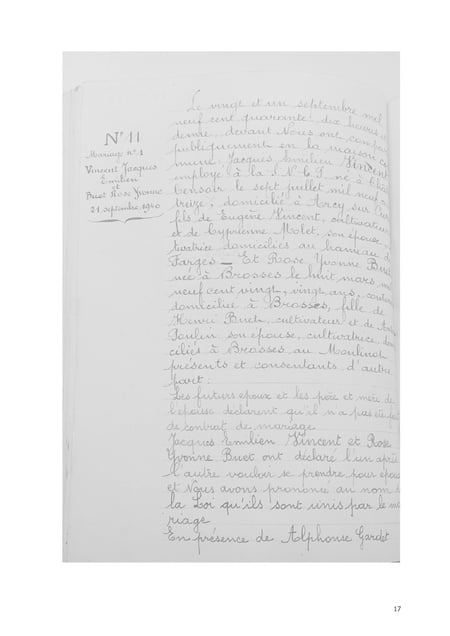 N° 11
Mariage n° 1
Vincent Jacques
Emilien
et
Buet Rose Yvonne
21 septembre 1940
Le vingt et un septembre mil
neuf cent quarante dix heures
demie, devant Nous ont
publiquement en la maison
mune: Jacques Emilien Vincent
employé à la S.N.C.F. né à
le sept juillet mil neuf
treize, domicilié à Arcy sur
fils de Eugène Vincent, cultivateur
et de Cyprienne Molet, son épouse,
domiciliés au hameau
Farges — Et Rose Yvonne
née à Brosses le huit mars mil
neuf cent vingt, vingt ans,
domiciliée à Brosses, fille de
Henri Buet, cultivateur et de
Poulin son épouse, cultivatrice,
ciliés à Brosses au
présents et consentants d'autre
part.
Les futurs époux et les père et mère de
l'épouse déclarent qu'il n'a pas été
de contrat de mariage
Jacques Emilien Vincent et Rose
Yvonne Buet ont déclaré l'un après
l'autre vouloir se prendre pour époux
et Nous avons prononcé au nom
la Loi qu'ils sont unis par le ma
riage
En présence de Alphonse Gardet
17